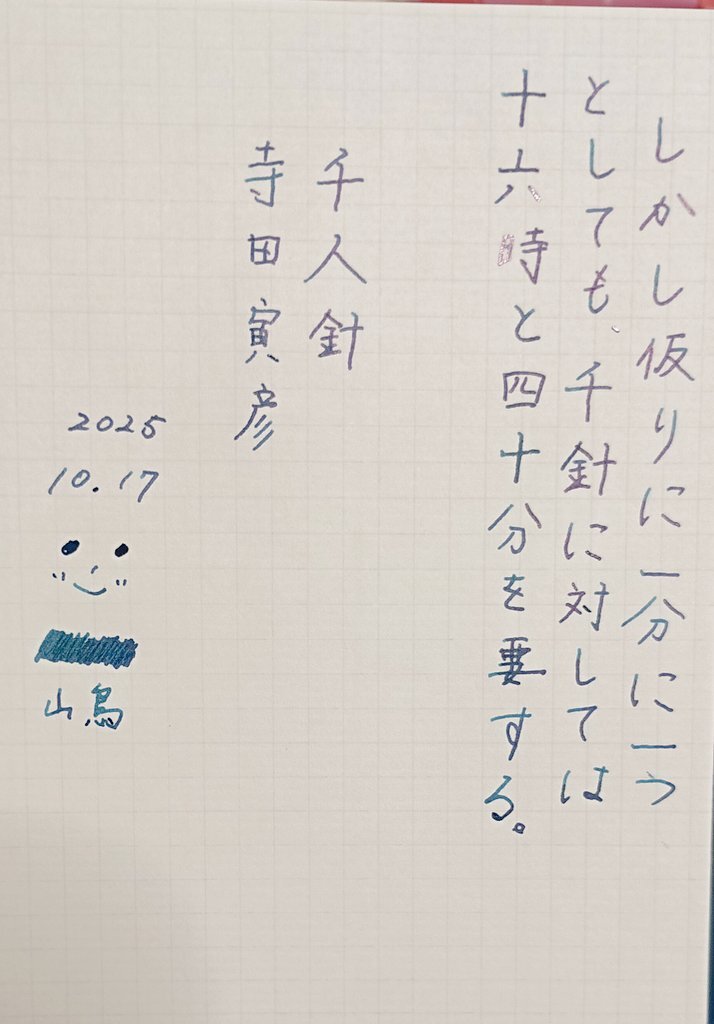 しかし仮りに一分に一つ
としても、千針に対しては
十六時と四十分を要する。
千人針
寺田寅彦
2025
10.17
山鳥